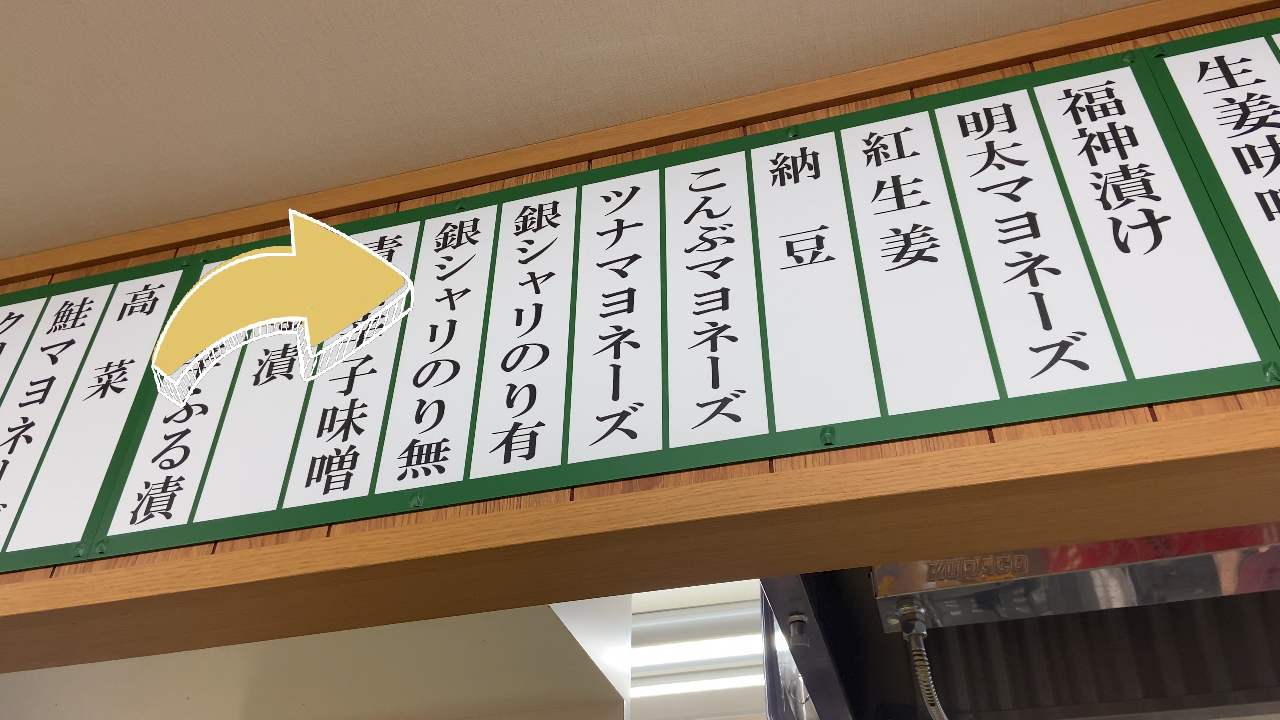 生姜味
福神漬け
明太マヨネーズ
紅生姜
納豆
こんぶマヨネーズ
ツナマヨネーズ
銀シャリのり有
銀シャリのり無
子味噌
漬
ふる漬
高菜
鮭マヨネー